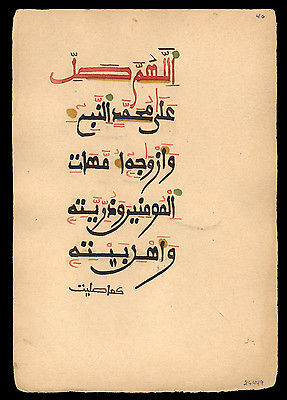 40
اللهم صل
على محمد النبي
وازوجه امهات
المومنين وذريته
واهل بيته
كما صليت